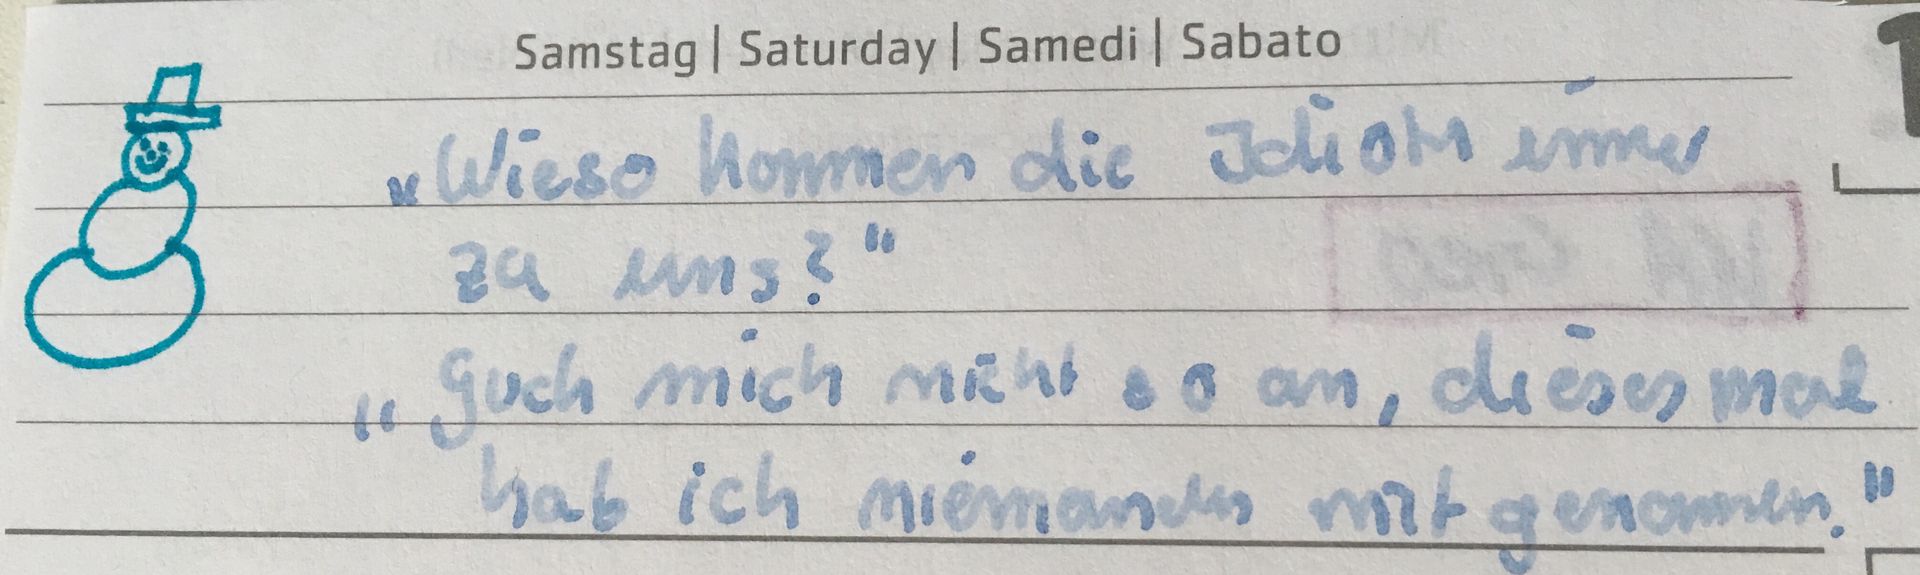 Samstag | Saturday | Samedi | Sabato
„Wieso kommen die Idioten immer
zu uns?"
„Guck mich nicht so an, dieses mal
hab ich niemanden mitgenommen."